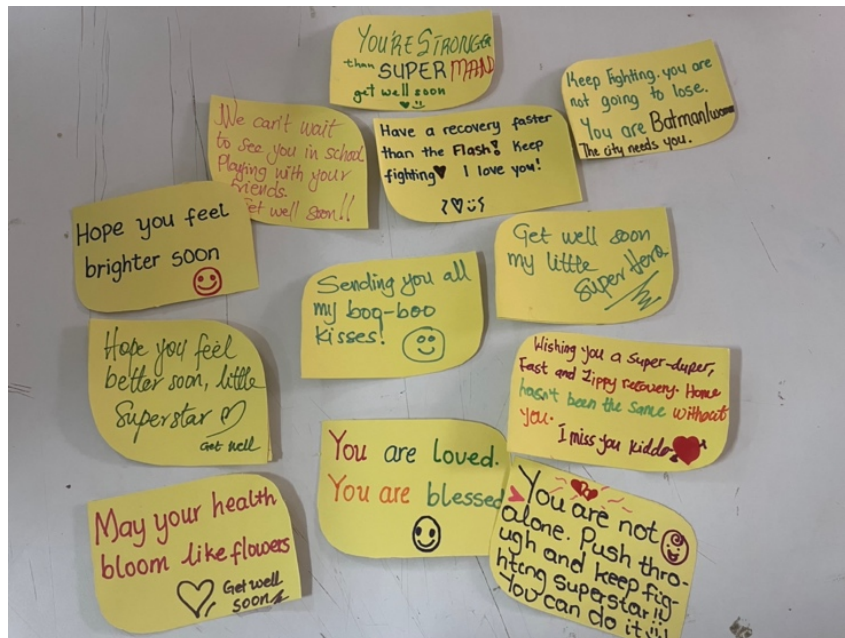 YOU'RE STRONGER
than SUPERMAN
get well soon
Keep Fighting. you are
not going to lose.
You are Batman/woman
The city needs you.
We can't wait
to see you in school
Playing with your
friends.
Get well soon!!
Have a recovery faster
than the Flash! Keep
fighting I love you!
Hope you feel
brighter soon
Get well soon
my little
Super Hero
Sending you all
my boo-boo
kisses!
Hope you feel
better soon, little
Superstar
Get well
Wishing you a super-duper,
Fast and Zippy recovery. Home
hasn't been the same without
you.
I miss you kiddo
You are loved.
You are blessed
May your health
bloom like flowers
Get well
soon
You are not
alone. Push thro-
ugh and keep fig-
hting superstar!!
You can do it!!!